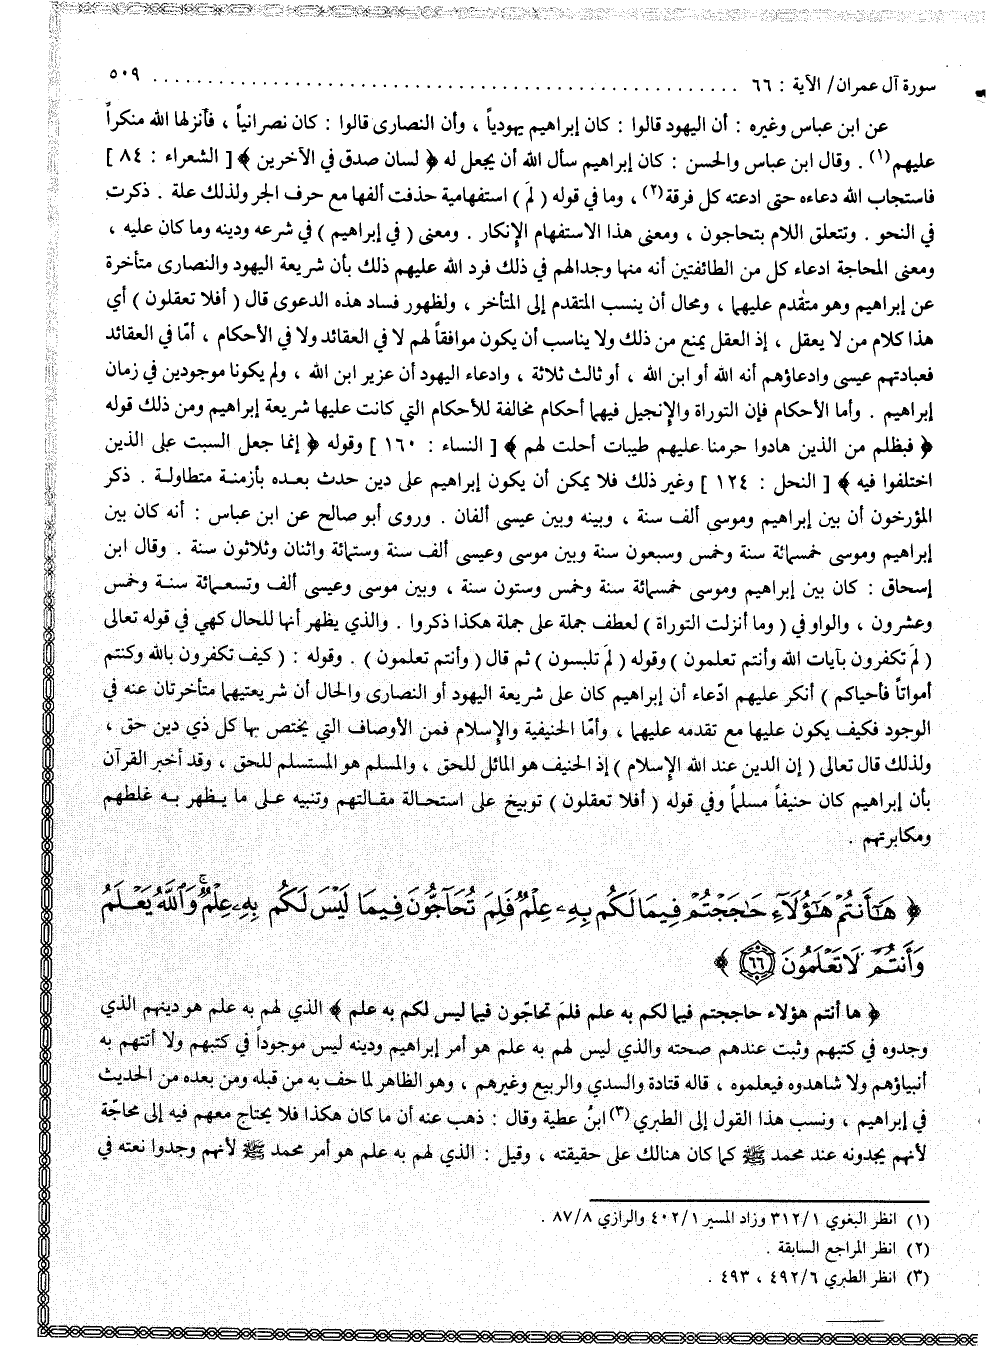 سورة آل عمران/ الآية : ٦٦ . . . . . . . . . . . . . . . . . . . . . . . . . . . . . . . . . . . . . . . . . . . ٥٠٩
عن ابن عباس وغيره : أن اليهود قالوا : كان إبراهيم يهودياً ، وأن النصارى قالوا : كان نصرانياً ، فأنزلها الله منكراً
عليهم(١) . وقال ابن عباس والحسن : كان إبراهيم سأل الله أن يجعل له ﴿ لسان صدق في الآخرين ﴾ [ الشعراء : ٨٤ ]
فاستجاب الله دعاءه حتى ادعته كل فرقة(٢) ، وما في قوله ( لمَ ) استفهامية حذفت ألفها مع حرف الجر ولذلك علة . ذكرت
في النحو . وتتعلق اللام بتحاجون ، ومعنى هذا الاستفهام الإنكار . ومعنى ( في إبراهيم ) في شرعه ودينه وما كان عليه ،
ومعنى المحاجة ادعاء كل من الطائفتين أنه منها وجدالهم في ذلك فرد الله عليهم ذلك بأن شريعة اليهود والنصارى متأخرة
عن إبراهيم وهو متقدم عليهما ، ومحال أن ينسب المتقدم إلى المتأخر ، ولظهور فساد هذه الدعوى قال ( أفلا تعقلون ) أي
هذا كلام من لا يعقل ، إذ العقل يمنع من ذلك ولا يناسب أن يكون موافقاً لهم لا في العقائد ولا في الأحكام ، أمّا في العقائد
فعبادتهم عيسى وادعاؤهم أنه الله أو ابن الله ، أو ثالث ثلاثة ، وادعاء اليهود أن عزير ابن الله ، ولم يكونا موجودين في زمان
إبراهيم . وأما الأحكام فإن التوراة والإنجيل فيهما أحكام مخالفة للأحكام التي كانت عليها شريعة إبراهيم ومن ذلك قوله
﴿ فبظلم من الذين هادوا حرمنا عليهم طيبات أحلت لهم ﴾ [ النساء : ١٦٠ ] وقوله ﴿ إنما جعل السبت على الذين
اختلفوا فيه ﴾ [ النحل : ١٢٤ ] وغير ذلك فلا يمكن أن يكون إبراهيم على دين حدث بعده بأزمنة متطاولة . ذكر
المؤرخون أن بين إبراهيم وموسى ألف سنة ، وبينه وبين عيسى ألفان . وروى أبو صالح عن ابن عباس : أنه كان بين
إبراهيم وموسى خمسمائة سنة وخمس وسبعون سنة وبين موسى وعيسى ألف سنة وستمائة واثنان وثلاثون سنة . وقال ابن
إسحاق : كان بين إبراهيم وموسى خمسمائة سنة وخمس وستون سنة ، وبين موسى وعيسى ألف وتسعمائة سنة وخمس
وعشرون ، والواو في ( وما أنزلت التوراة ) لعطف جملة على جملة هكذا ذكروا . والذي يظهر أنها للحال كهي في قوله تعالى
( لمَ تكفرون بآيات الله وأنتم تعلمون ) وقوله ( لمَ تلبسون ) ثم قال ( وأنتم تعلمون ) . وقوله : ( كيف تكفرون بالله وكنتم
أمواتاً فأحياكم ) أنكر عليهم ادّعاء أن إبراهيم كان على شريعة اليهود أو النصارى والحال أن شريعتيهما متأخرتان عنه في
الوجود فكيف يكون عليها مع تقدمه عليهما ، وأمّا الحنيفية والإسلام فمن الأوصاف التي يختص بها كل ذي دين حق ،
ولذلك قال تعالى ( إن الدين عند الله الإسلام ) إذ الحنيف هو المائل للحق ، والمسلم هو المستسلم للحق ، وقد أخبر القرآن
بأن إبراهيم كان حنيفاً مسلماً وفي قوله ( أفلا تعقلون ) توبيخ على استحالة مقالتهم وتنبيه على ما يظهر به غلطهم
ومكابرتهم .
﴿ هَـٰٓأَنتُمْ هَـٰٓؤُلَآءِ حَـٰجَجْتُمْ فِيمَا لَكُم بِهِۦ عِلْمٌ فَلِمَ تُحَآجُّونَ فِيمَا لَيْسَ لَكُم بِهِۦ عِلْمٌ ۚ وَٱللَّهُ يَعْلَمُ
وَأَنتُمْ لَا تَعْلَمُونَ ٦٦ ﴾
﴿ ها أنتم هؤلاء حاججتم فيما لكم به علم فلمَ تحاجّون فيما ليس لكم به علم ﴾ الذي لهم به علم هو دينهم الذي
وجدوه في كتبهم وثبت عندهم صحته والذي ليس لهم به علم هو أمر إبراهيم ودينه ليس موجوداً في كتبهم ولا أتتهم به
أنبياؤهم ولا شاهدوه فيعلموه ، قاله قتادة والسدي والربيع وغيرهم ، وهو الظاهر لما حف به من قبله ومن بعده من الحديث
في إبراهيم ، ونسب هذا القول إلى الطبري(٣) ابنُ عطية وقال : ذهب عنه أن ما كان هكذا فلا يحتاج معهم فيه إلى محاجّة
لأنهم يجدونه عند محمد ﷺ كما كان هنالك على حقيقته ، وقيل : الذي لهم به علم هو أمر محمد ﷺ لأنهم وجدوا نعته في
(١) انظر البغوي ٣١٢/١ وزاد المسير ٤٠٢/١ والرازي ٨٧/٨ .
(٢) انظر المراجع السابقة .
(٣) انظر الطبري ٤٩٢/٦ ، ٤٩٣ .